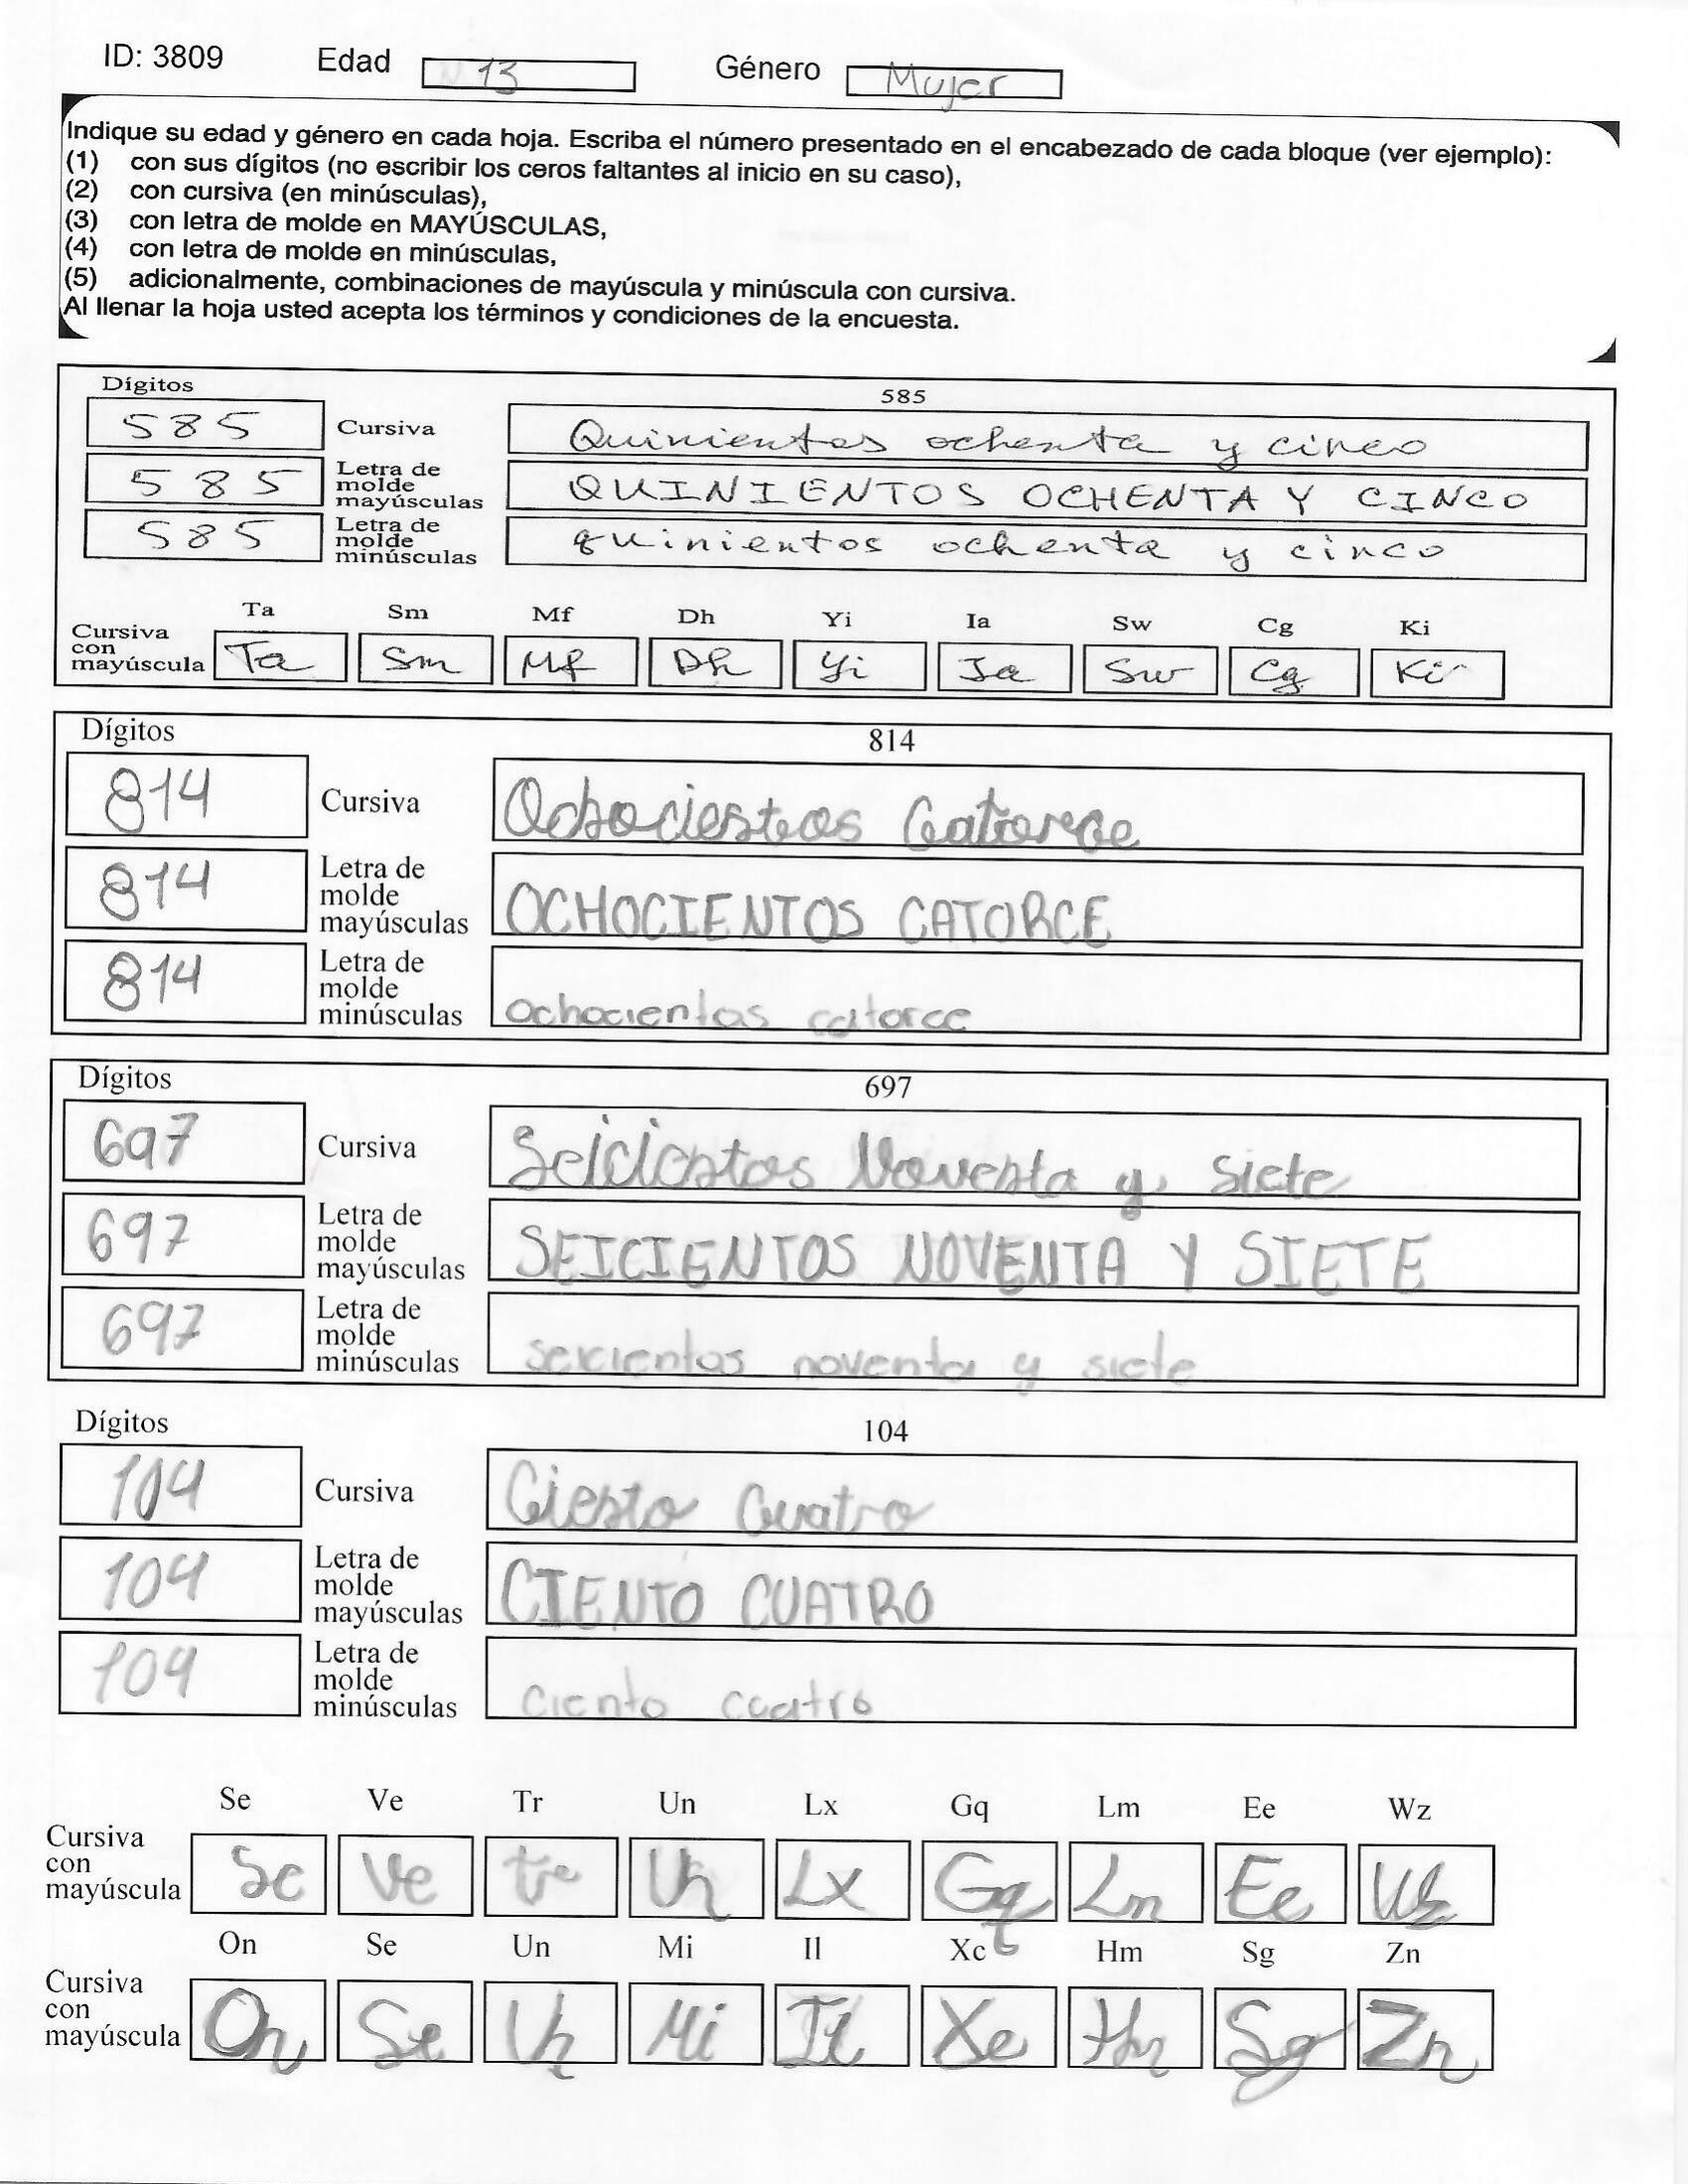 ID: 3809 Edad 13 Género Mujer
Indique su edad y género en cada hoja. Escriba el número presentado en el encabezado de cada bloque (ver ejemplo):
(1) con sus dígitos (no escribir los ceros faltantes al inicio en su caso),
(2) con cursiva (en minúsculas),
(3) con letra de molde en MAYÚSCULAS,
(4) con letra de molde en minúsculas,
(5) adicionalmente, combinaciones de mayúscula y minúscula con cursiva.
Al llenar la hoja usted acepta los términos y condiciones de la encuesta.
Dígitos 585
585 Cursiva Quinientos ochenta y cinco
585 Letra de molde mayúsculas QUINIENTOS OCHENTA Y CINCO
585 Letra de molde minúsculas quinientos ochenta y cinco
Ta Sm Mf Dh Yi Ia Sw Cg Ki
Cursiva con mayúscula Ta Sm Mf Dh Yi Ia Sw Cg Ki
Dígitos 814
814 Cursiva Ochocientos Catorce
814 Letra de molde mayúsculas OCHOCIENTOS CATORCE
814 Letra de molde minúsculas ochocientos catorce
Dígitos 697
697 Cursiva Seicientos Noventa y siete
697 Letra de molde mayúsculas SEICIENTOS NOVENTA Y SIETE
697 Letra de molde minúsculas seicientos noventa y siete
Dígitos 104
104 Cursiva Ciento Cuatro
104 Letra de molde mayúsculas CIENTO CUATRO
104 Letra de molde minúsculas ciento cuatro
Se Ve Tr Un Lx Gq Lm Ee Wz
Cursiva con mayúscula Se Ve tr Un Lx Gq Lm Ee Wz
On Se Un Mi Il Xc Hm Sg Zn
Cursiva con mayúscula On Se Un Mi Il Xc Hm Sg Zn